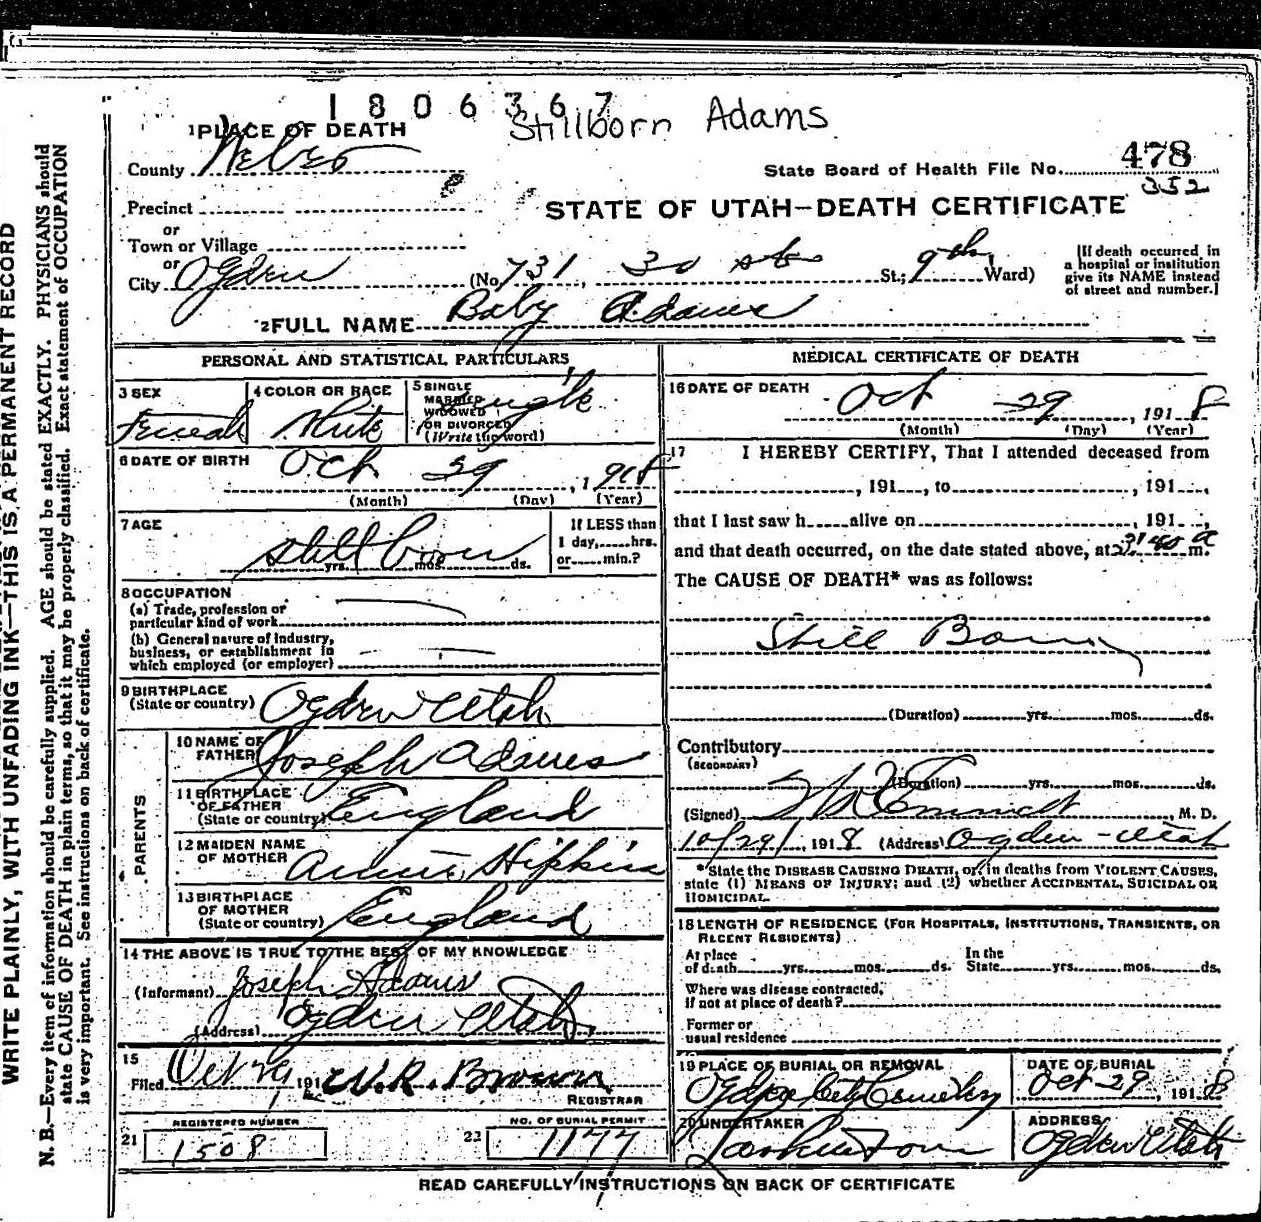 1806367
Stillborn Adams
1 PLACE OF DEATH
County Weber
State Board of Health File No. 478
352
Precinct
or
Town or Village
STATE OF UTAH—DEATH CERTIFICATE
or
City Ogden (No. 731, 30 St.; 9th Ward)
[If death occurred in
a hospital or institution
give its NAME instead
of street and number.]
2 FULL NAME Baby Adams
PERSONAL AND STATISTICAL PARTICULARS
3 SEX
Female
4 COLOR OR RACE
White
5 SINGLE
MARRIED
WIDOWED
OR DIVORCED
(Write the word)
Single
6 DATE OF BIRTH
Oct 29, 1918
(Month) (Day) (Year)
7 AGE
Stillborn
yrs. mos. ds.
If LESS than
1 day,.....hrs.
or.....min.?
8 OCCUPATION
(a) Trade, profession or
particular kind of work
(b) General nature of industry,
business, or establishment in
which employed (or employer)
9 BIRTHPLACE
(State or country) Ogden Utah
PARENTS
10 NAME OF
FATHER Joseph Adams
11 BIRTHPLACE
OF FATHER
(State or country) England
12 MAIDEN NAME
OF MOTHER Hipkins
13 BIRTHPLACE
OF MOTHER
(State or country) England
14 THE ABOVE IS TRUE TO THE BEST OF MY KNOWLEDGE
(Informant) Joseph Adams
(Address) Ogden Utah
15
Filed Oct 29, 191 W. R. Brown
REGISTRAR
21 REGISTERED NUMBER
1508
22 NO. OF BURIAL PERMIT
1177
MEDICAL CERTIFICATE OF DEATH
16 DATE OF DEATH
Oct 29, 1918
(Month) (Day) (Year)
17 I HEREBY CERTIFY, That I attended deceased from
, 191...., to , 191....,
that I last saw h.....alive on , 191....,
and that death occurred, on the date stated above, at 3:40 a m.
The CAUSE OF DEATH* was as follows:
Still Born
(Duration) yrs. mos. ds.
Contributory
(SECONDARY)
(Duration) yrs. mos. ds.
(Signed) Emmett M. D.
10/29/, 1918 (Address) Ogden - Utah
*State the DISEASE CAUSING DEATH, or, in deaths from VIOLENT CAUSES,
state (1) MEANS OF INJURY; and (2) whether ACCIDENTAL, SUICIDAL OR
HOMICIDAL.
18 LENGTH OF RESIDENCE (FOR HOSPITALS, INSTITUTIONS, TRANSIENTS, OR
RECENT RESIDENTS)
At place
of death yrs. mos. ds.
In the
State yrs. mos. ds.
Where was disease contracted,
if not at place of death?
Former or
usual residence
19 PLACE OF BURIAL OR REMOVAL
Ogden City Cemetery
DATE OF BURIAL
Oct 29, 1918
20 UNDERTAKER
ADDRESS
Ogden Utah
READ CAREFULLY INSTRUCTIONS ON BACK OF CERTIFICATE
WRITE PLAINLY, WITH UNFADING INK—THIS IS A PERMANENT RECORD
N. B.—Every item of information should be carefully supplied. AGE should be stated EXACTLY. PHYSICIANS should
state CAUSE OF DEATH in plain terms, so that it may be properly classified. Exact statement of OCCUPATION
is very important. See instructions on back of certificate.